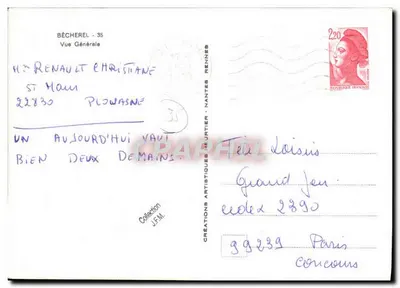 BÉCHEREL - 35
Vue Générale
RENAULT CHRISTIANE
ST Maur
22830 PLOUASNE
UN AUJOURD'HUI VAUT
BIEN DEUX DEMAINS.
Collection
J.F.M.
CRÉATIONS ARTISTIQUES HEURTIER - NANTES RENNES
2,20
Télé Loisirs
Grand Jeu
cedex 2890
99239 Paris
concours